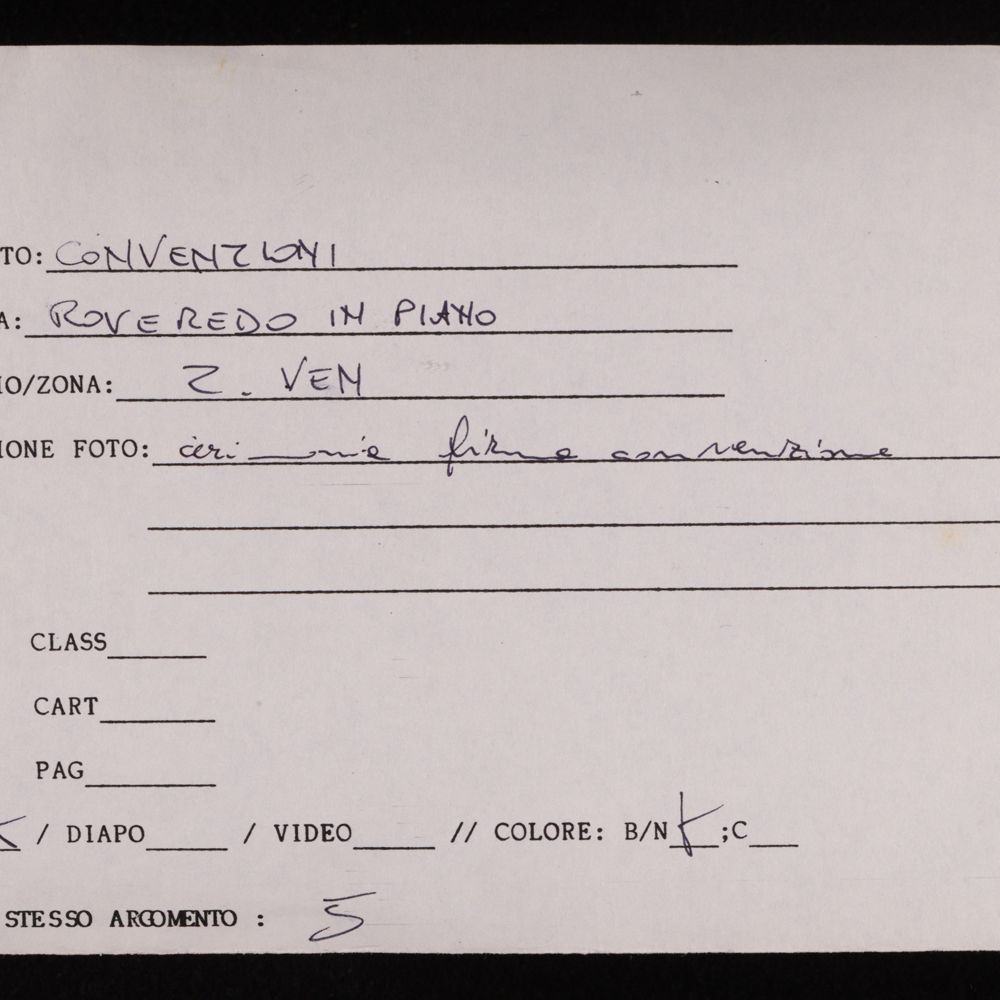 TO: CONVENZIONI
A: ROVEREDO IN PIANO
IO/ZONA: Z. VEN
IONE FOTO: cerimonia firma convenzione
CLASS
CART
PAG
X / DIAPO / VIDEO // COLORE: B/N X ;C
STESSO ARGOMENTO : 5